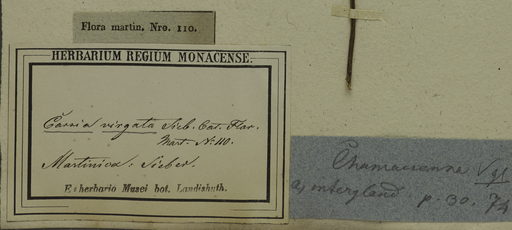 Flora martin. Nro. 110.
HERBARIUM REGIUM MONACENSE.
Cassia virgata Sieb. Cat. Flor.
Mart. No. 110.
Martinica: Sieber.
E herbario Musei bot. Landishuth.
Chamaesenna
p. 30.